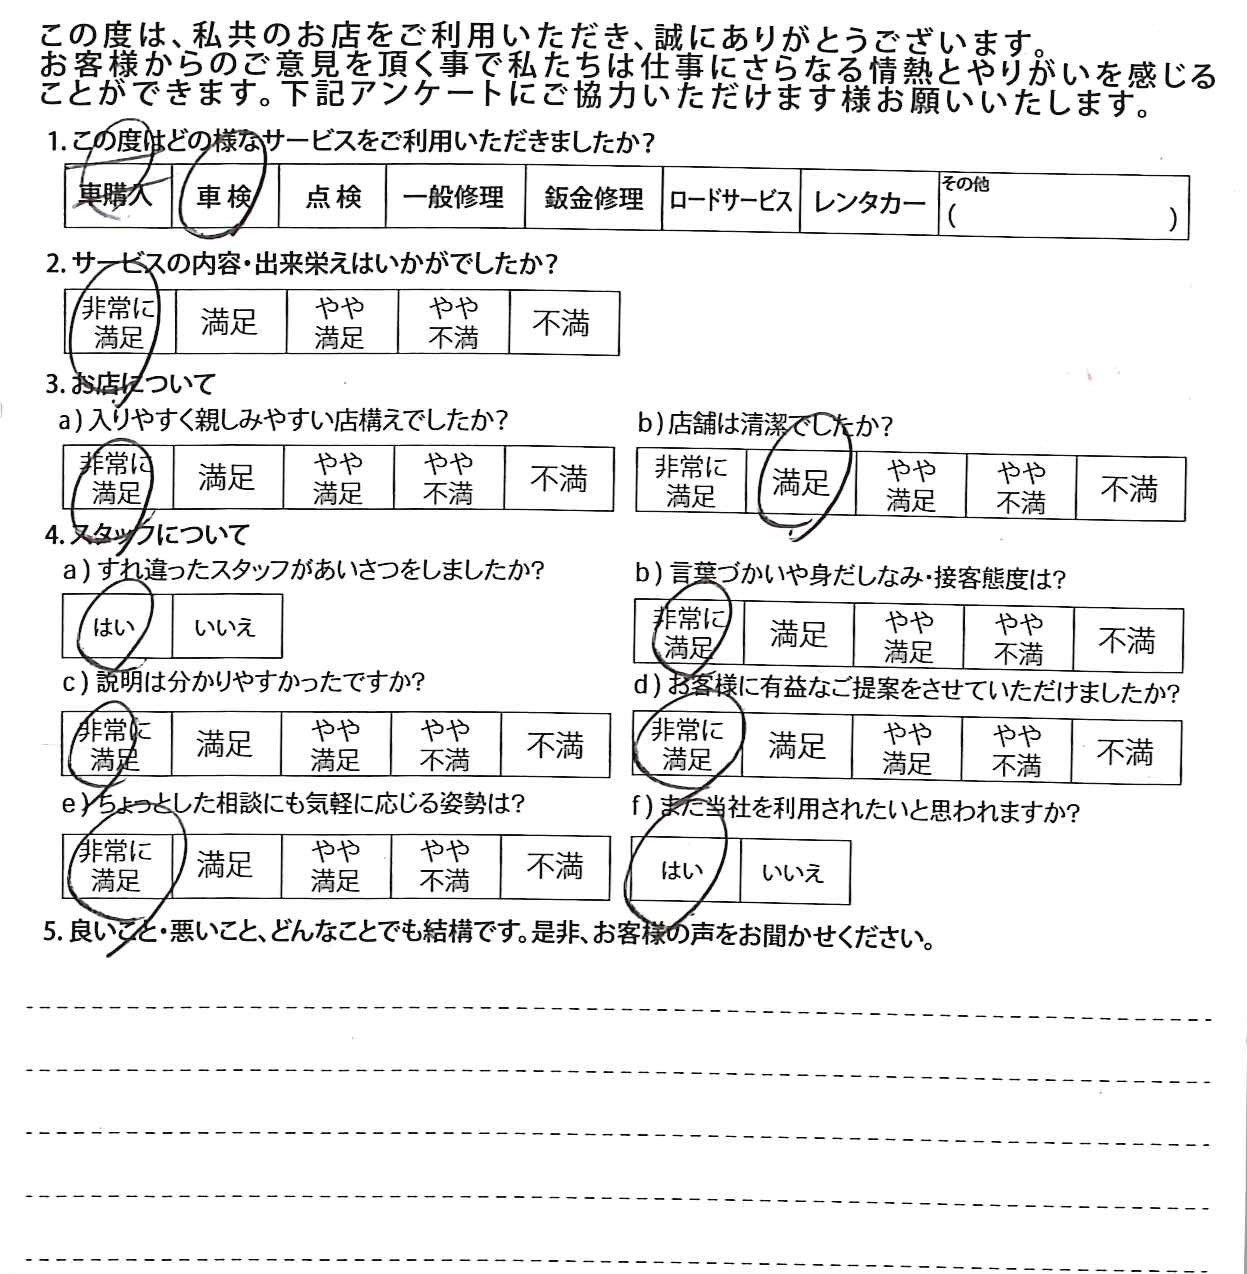 この度は、私共のお店をご利用いただき、誠にありがとうございます。
お客様からのご意見を頂く事で私たちは仕事にさらなる情熱とやりがいを感じる
ことができます。下記アンケートにご協力いただけます様お願いいたします。
1.この度はどの様なサービスをご利用いただきましたか?
車購入 車検 点検 一般修理 鈑金修理 ロードサービス レンタカー その他( )
2.サービスの内容・出来栄えはいかがでしたか?
非常に満足 満足 やや満足 やや不満 不満
3.お店について
a)入りやすく親しみやすい店構えでしたか?
非常に満足 満足 やや満足 やや不満 不満
b)店舗は清潔でしたか?
非常に満足 満足 やや満足 やや不満 不満
4.スタッフについて
a)すれ違ったスタッフがあいさつをしましたか?
はい いいえ
b)言葉づかいや身だしなみ・接客態度は?
非常に満足 満足 やや満足 やや不満 不満
c)説明は分かりやすかったですか?
非常に満足 満足 やや満足 やや不満 不満
d)お客様に有益なご提案をさせていただけましたか?
非常に満足 満足 やや満足 やや不満 不満
e)ちょっとした相談にも気軽に応じる姿勢は?
非常に満足 満足 やや満足 やや不満 不満
f)また当社を利用されたいと思われますか?
はい いいえ
5.良いこと・悪いこと、どんなことでも結構です。是非、お客様の声をお聞かせください。